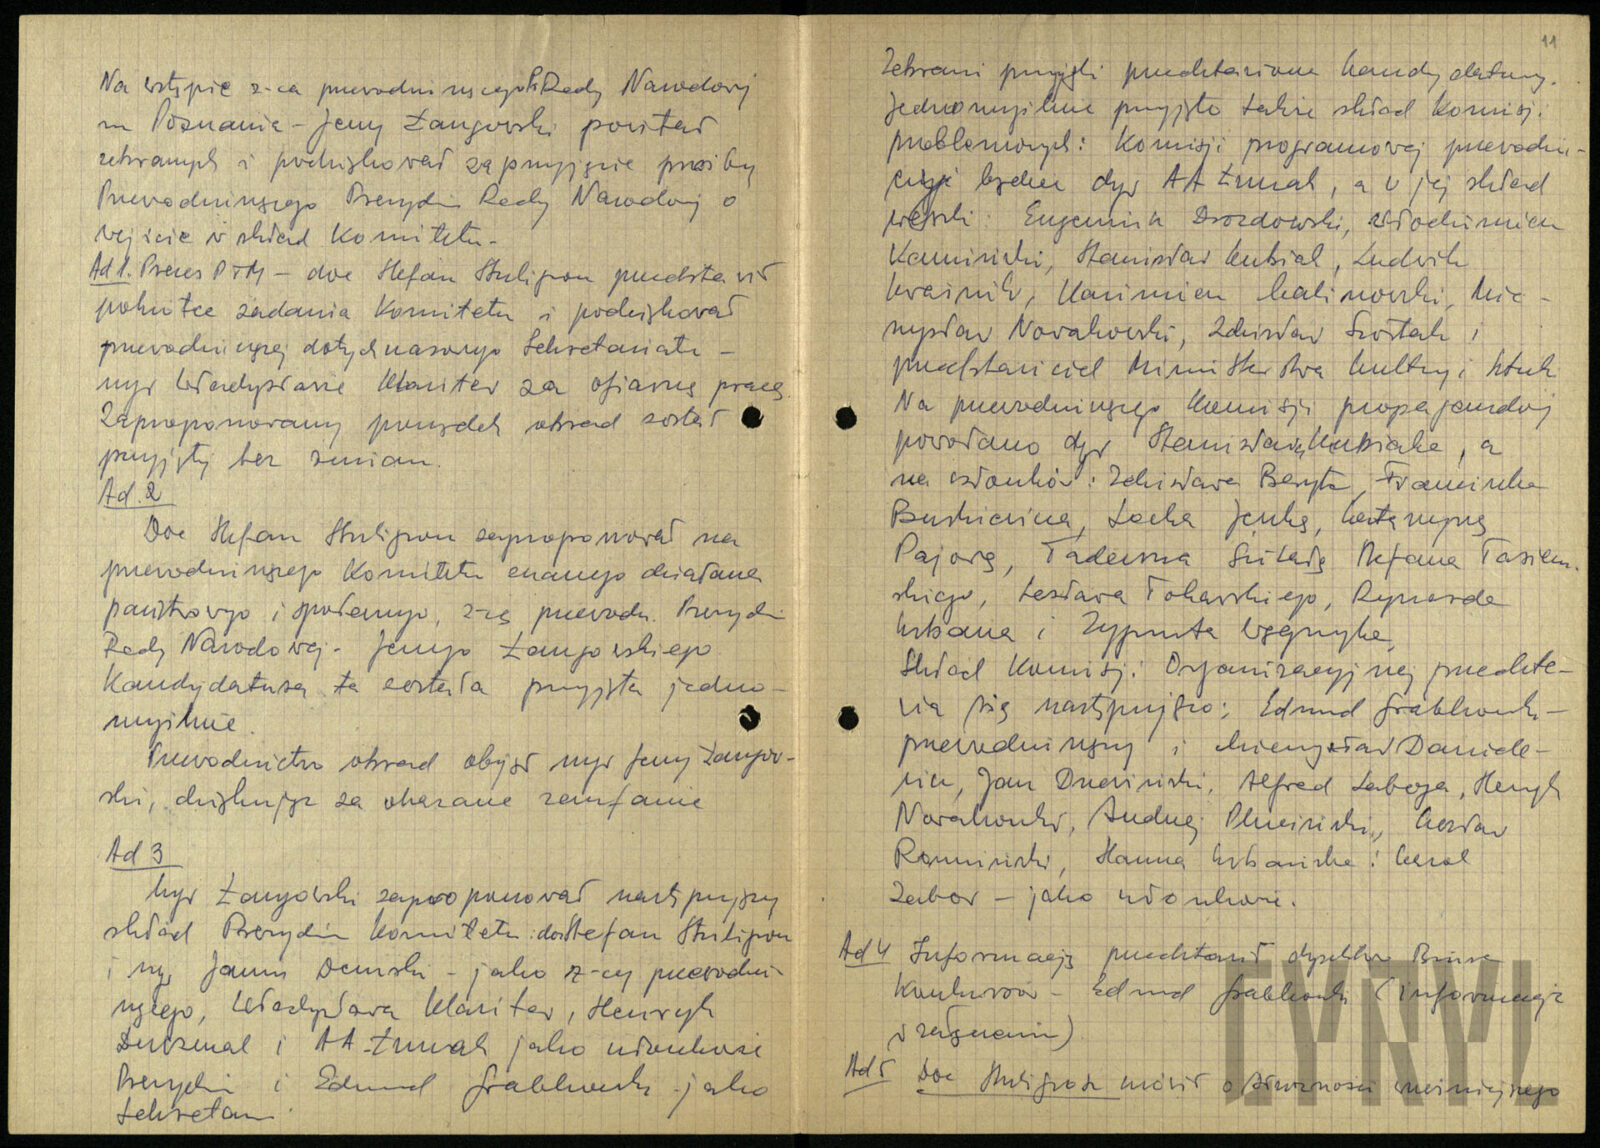 Na wstępie z-ca przewodniczącego Rady Narodowej
m Poznania - Jerzy Łangowski powitał
zebranych i podziękował za przyjęcie prośby
Przewodniczącego Prezydium Rady Narodowej o
wejście w skład Komitetu.
Ad 1. Prezes PTM - doc Stefan Stuligrosz przedstawił
pokrótce zadania Komitetu i podziękował
przewodniczącej dotychczasowego Sekretariatu -
mgr Władysławie Klawiter za ofiarną pracę
Zaproponowany porządek obrad został
przyjęty bez zmian.
Ad. 2
Doc Stefan Stuligrosz zaproponował na
przewodniczącego Komitetu znanego działacza
państwowego i społecznego, z-cę przewodn. Prezydium
Rady Narodowej - Jerzego Łangowskiego
Kandydatura ta została przyjęta jedno-
myślnie.
Przewodnictwo obrad objął mgr Jerzy Łangow-
ski, dziękując za okazane zaufanie
Ad 3
Mgr Łangowski zaproponował następujący
skład Prezydium Komitetu: doc Stefan Stuligrosz
i mgr Demski - jako z-cy przewodni-
czącego, Władysława Klawiter, Henryk
Duczmal i AA. Łuczak jako członkowie
Prezydium i Edmund Grabkowski - jako
Sekretarz.
11
Zebrani przyjęli przedstawione kandydatury.
Jednomyślnie przyjęto także skład Komisji
problemowych: Komisji programowej przewodni-
czyć będzie dyr AA Łuczak, a w jej skład
weszli: Eugeniusz Drozdowski, Włodzimierz
Kamiński, Stanisław Kubiak, Ludwik
Kwaśnik, Kazimierz Malinowski, Mie-
czysław Nowakowski, Zdzisław Szostak i
przedstawiciel Ministerstwa Kultury i Sztuki
Na przewodniczącego Komisji propagandowej
powołano dyr Stanisława Kubiaka, a
na członków: Zdzisława Beryta, Franciszka
Buśkiewicza, Lecha Jęczką, Katarzynę
Pajorę, Tadeusza Stefana Tasiem-
skiego, Lesława Tokarskiego, Ryszarda
Urbana i Zygmunta Węgrzyka
Skład Komisji Organizacyjnej przedsta-
wia się następująco: Edmund Grabkowski -
przewodniczący i Mieczysław Daniele-
wicz, Jan Alfred Laboga, Henryk
Nowakowski, Andrzej Pluciński, Czesław
Romiński, Hanna Urbańska i Karol
Zabor - jako członkowie.
Ad 4 Informację przedstawił dyrektor Biura
Konkursów - Edmund Grabkowski (informacja
w załączeniu)
Ad 5 Doc Stuligrosz mówił o Wieniawskiego
CYRYL